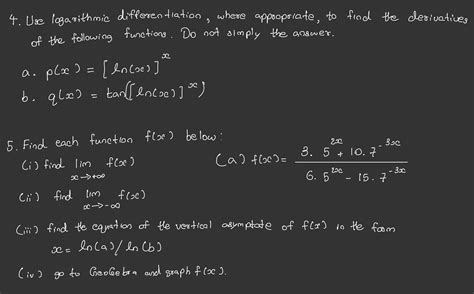 4. Use logarithmic differentiation, where appropriate, to find the derivatives
of the following functions. Do not simply the answer.
a. p(x) = [ln(x)]^x
b. q(x) = tan([ln(x)]^x)
5. Find each function f(x) below:
(i) find lim x→+∞ f(x)
(a) f(x) = (3. 5^2x + 10. 7^-3x) / (6. 5^2x - 15. 7^-3x)
(ii) find lim x→-∞ f(x)
(iii) find the equation of the vertical asymptote of f(x) in the form
x = ln(a)/ln(b)
(iv) go to GeoGebra and graph f(x).